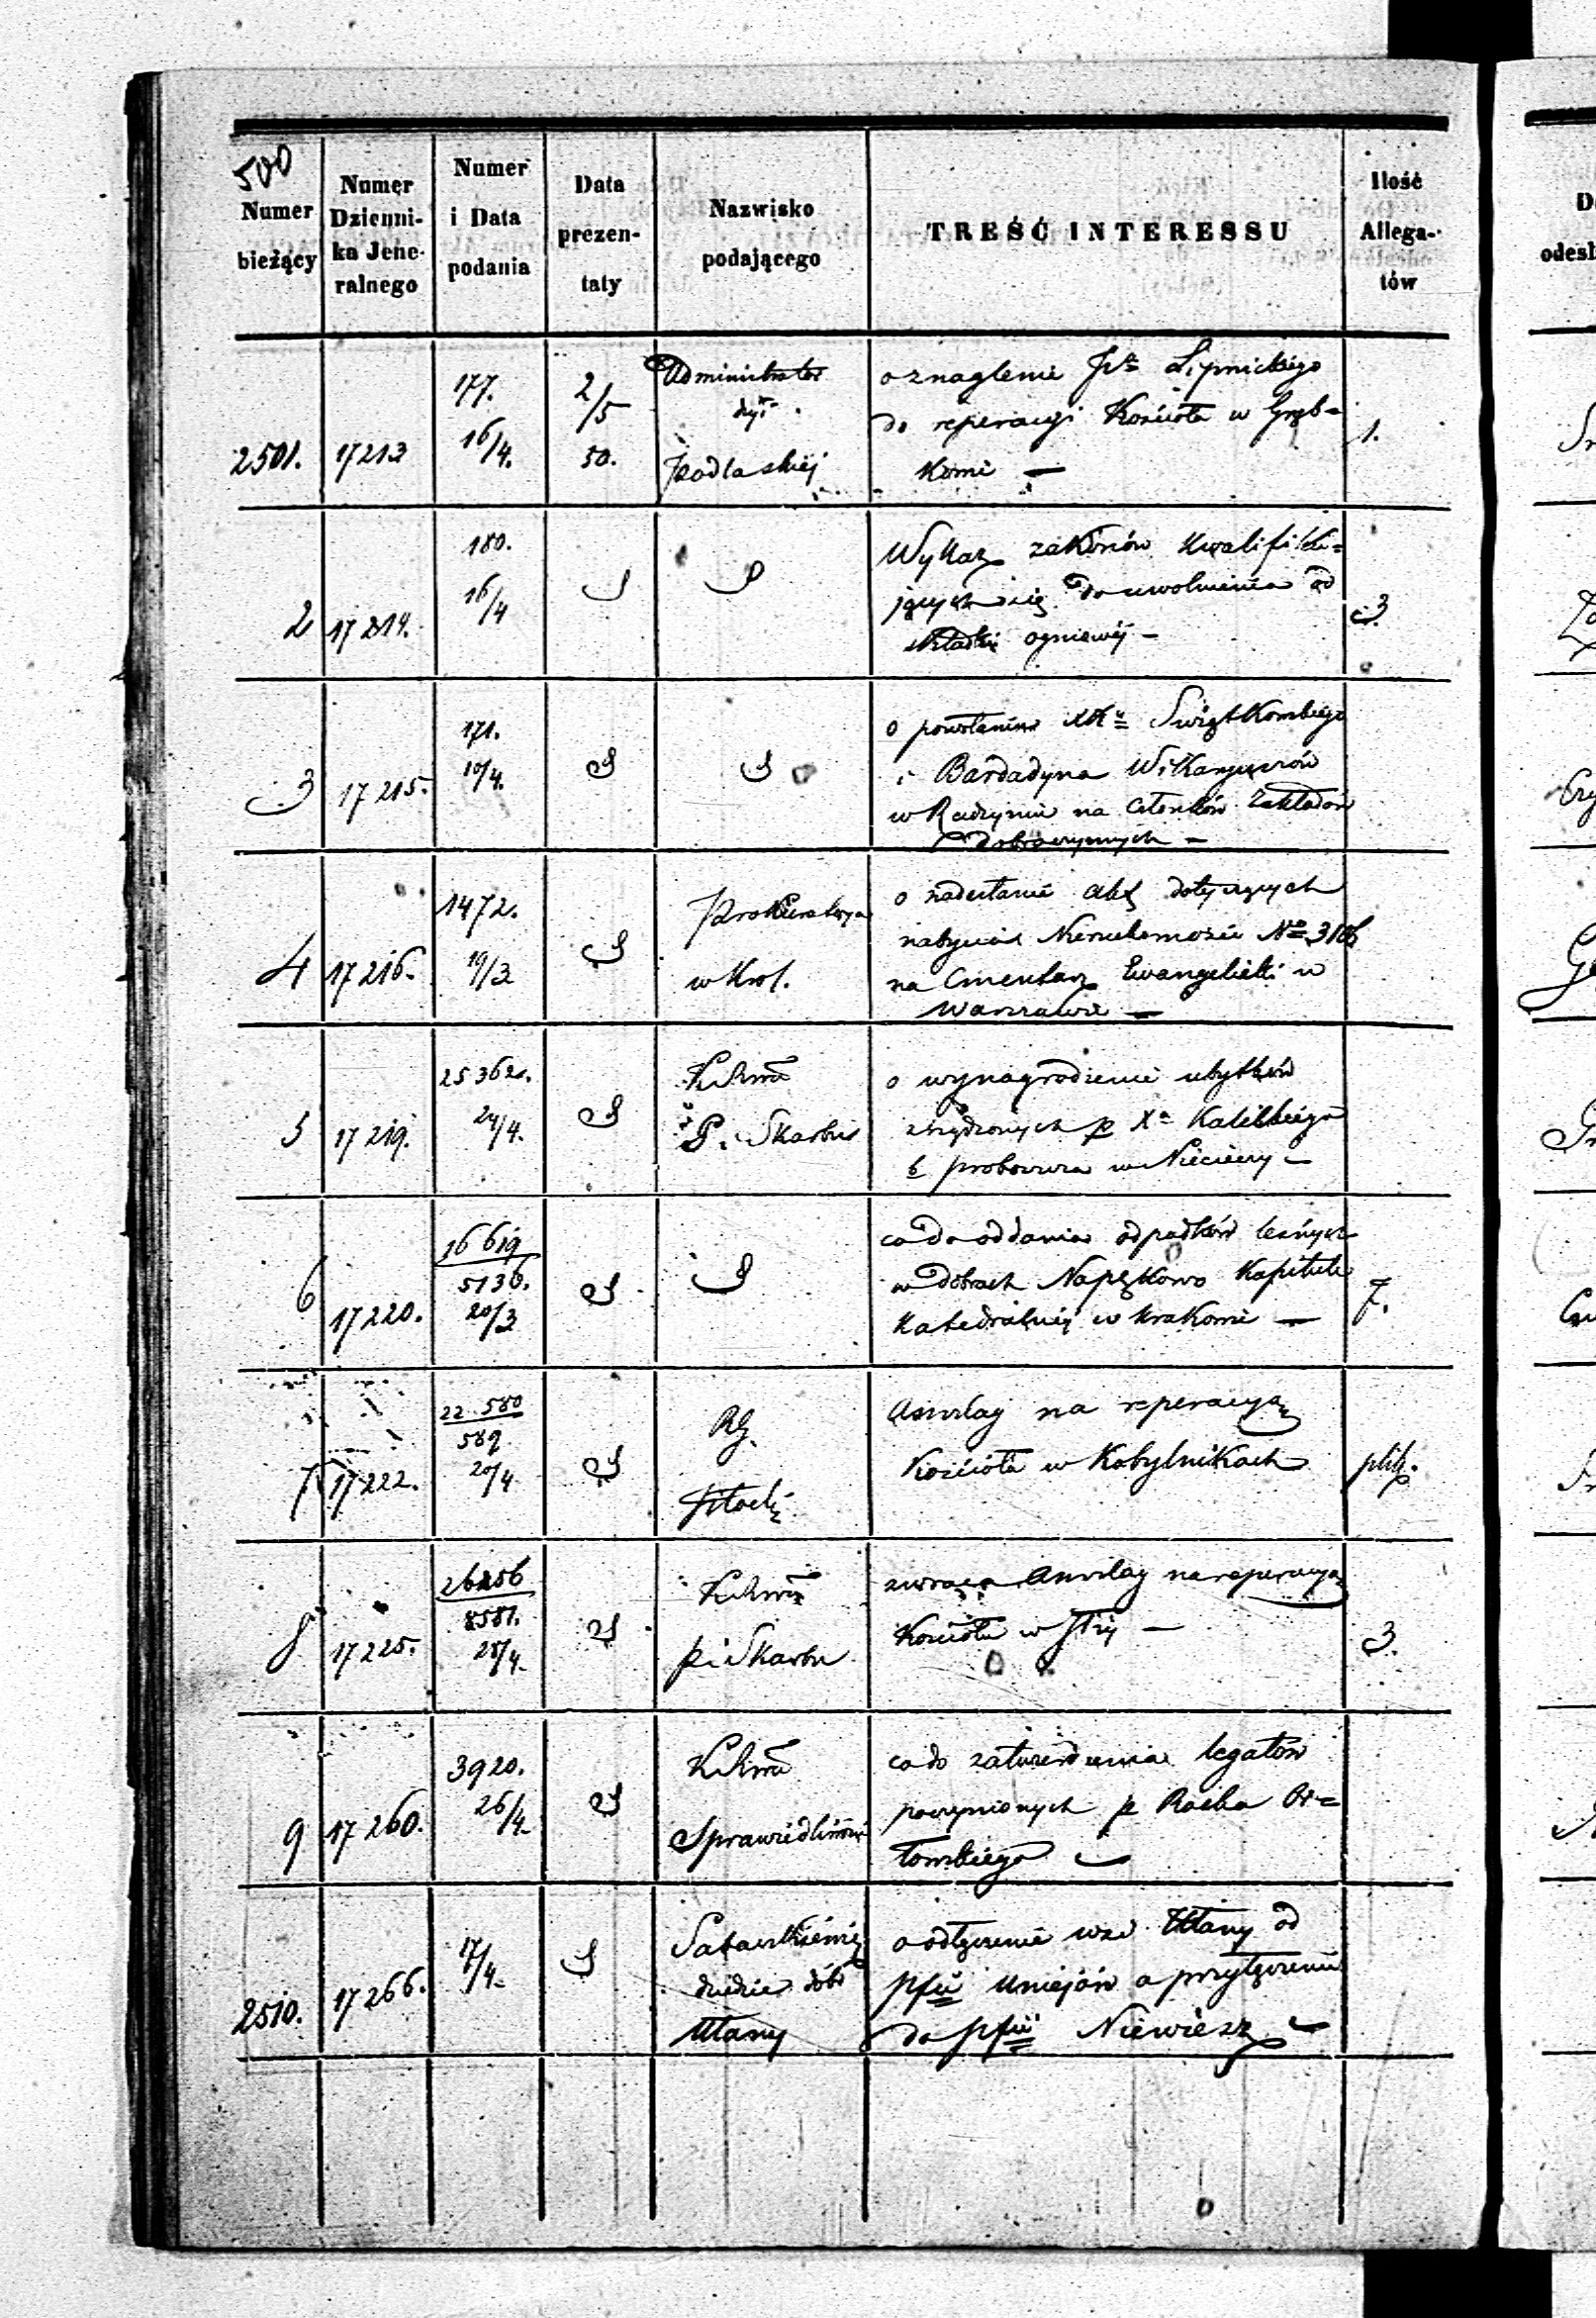 500
Numer bieżący
Numer Dzienni-ka Jene-ralnego
Numer i Data podania
Data prezen-taty
Nazwisko podającego
TREŚĆ INTERESSU
Ilość Allega-tów
2501. 17213 177. 16/4. 2/5 50. Administrator dyi Podlaskiej
o znaglenie Lipnickiego
do reperacyi Kościoła w Gręb=
kowie —
1.
2 17214. 180. 16/4
Wykaz zakonów kwalifiku=
jących się do uwolnienia od
składki ogniowéj —
3
3 17215. 171. 10/4.
o powołanie XX Świątkowskiego
i Bardadyna Wikaryuszów
w Radzyniu na Członków Zakładów
dobroczynnych —
4 17216. 1472. 19/3 Prokuratorya w Król.
o nadesłanie akt dotyczących
nabycia Nieruchomości No 3106
na Cmentarz Ewangelicki w
Warszawie —
5 17219. 25362. 24/4. P. i Skarbu
o wynagrodzenie ubytków
zrządzonych p Xa
b proboszcza w Niecieczy —
6 17220. 16619 5136. 20/3
co do oddania odpadków leśnych
w dobrach Napękowo Kapitule
Katedralnéj w Krakowie —
7.
7 17222. 22580 589 20/4 RG. Płocki
Anszlag na reperacyą
Kościoła w Kobylnikach
plik.
8 17225. 26256 8581. 25/4. P i Skarbu
zwraca Anszlag na reperacyą
Kościoła w
3.
9 17260. 3920. 26/4. Sprawiedliwości
co do zatwierdzenia legatów
poczynionych p Rocha Or=
łowskiego —
2510. 17266. 17/4. dziedzic dóbr Ułany
o odłączenie wsi Ułany od
pfii Uniejów a przyłączenie
do pfii Niewiesz —